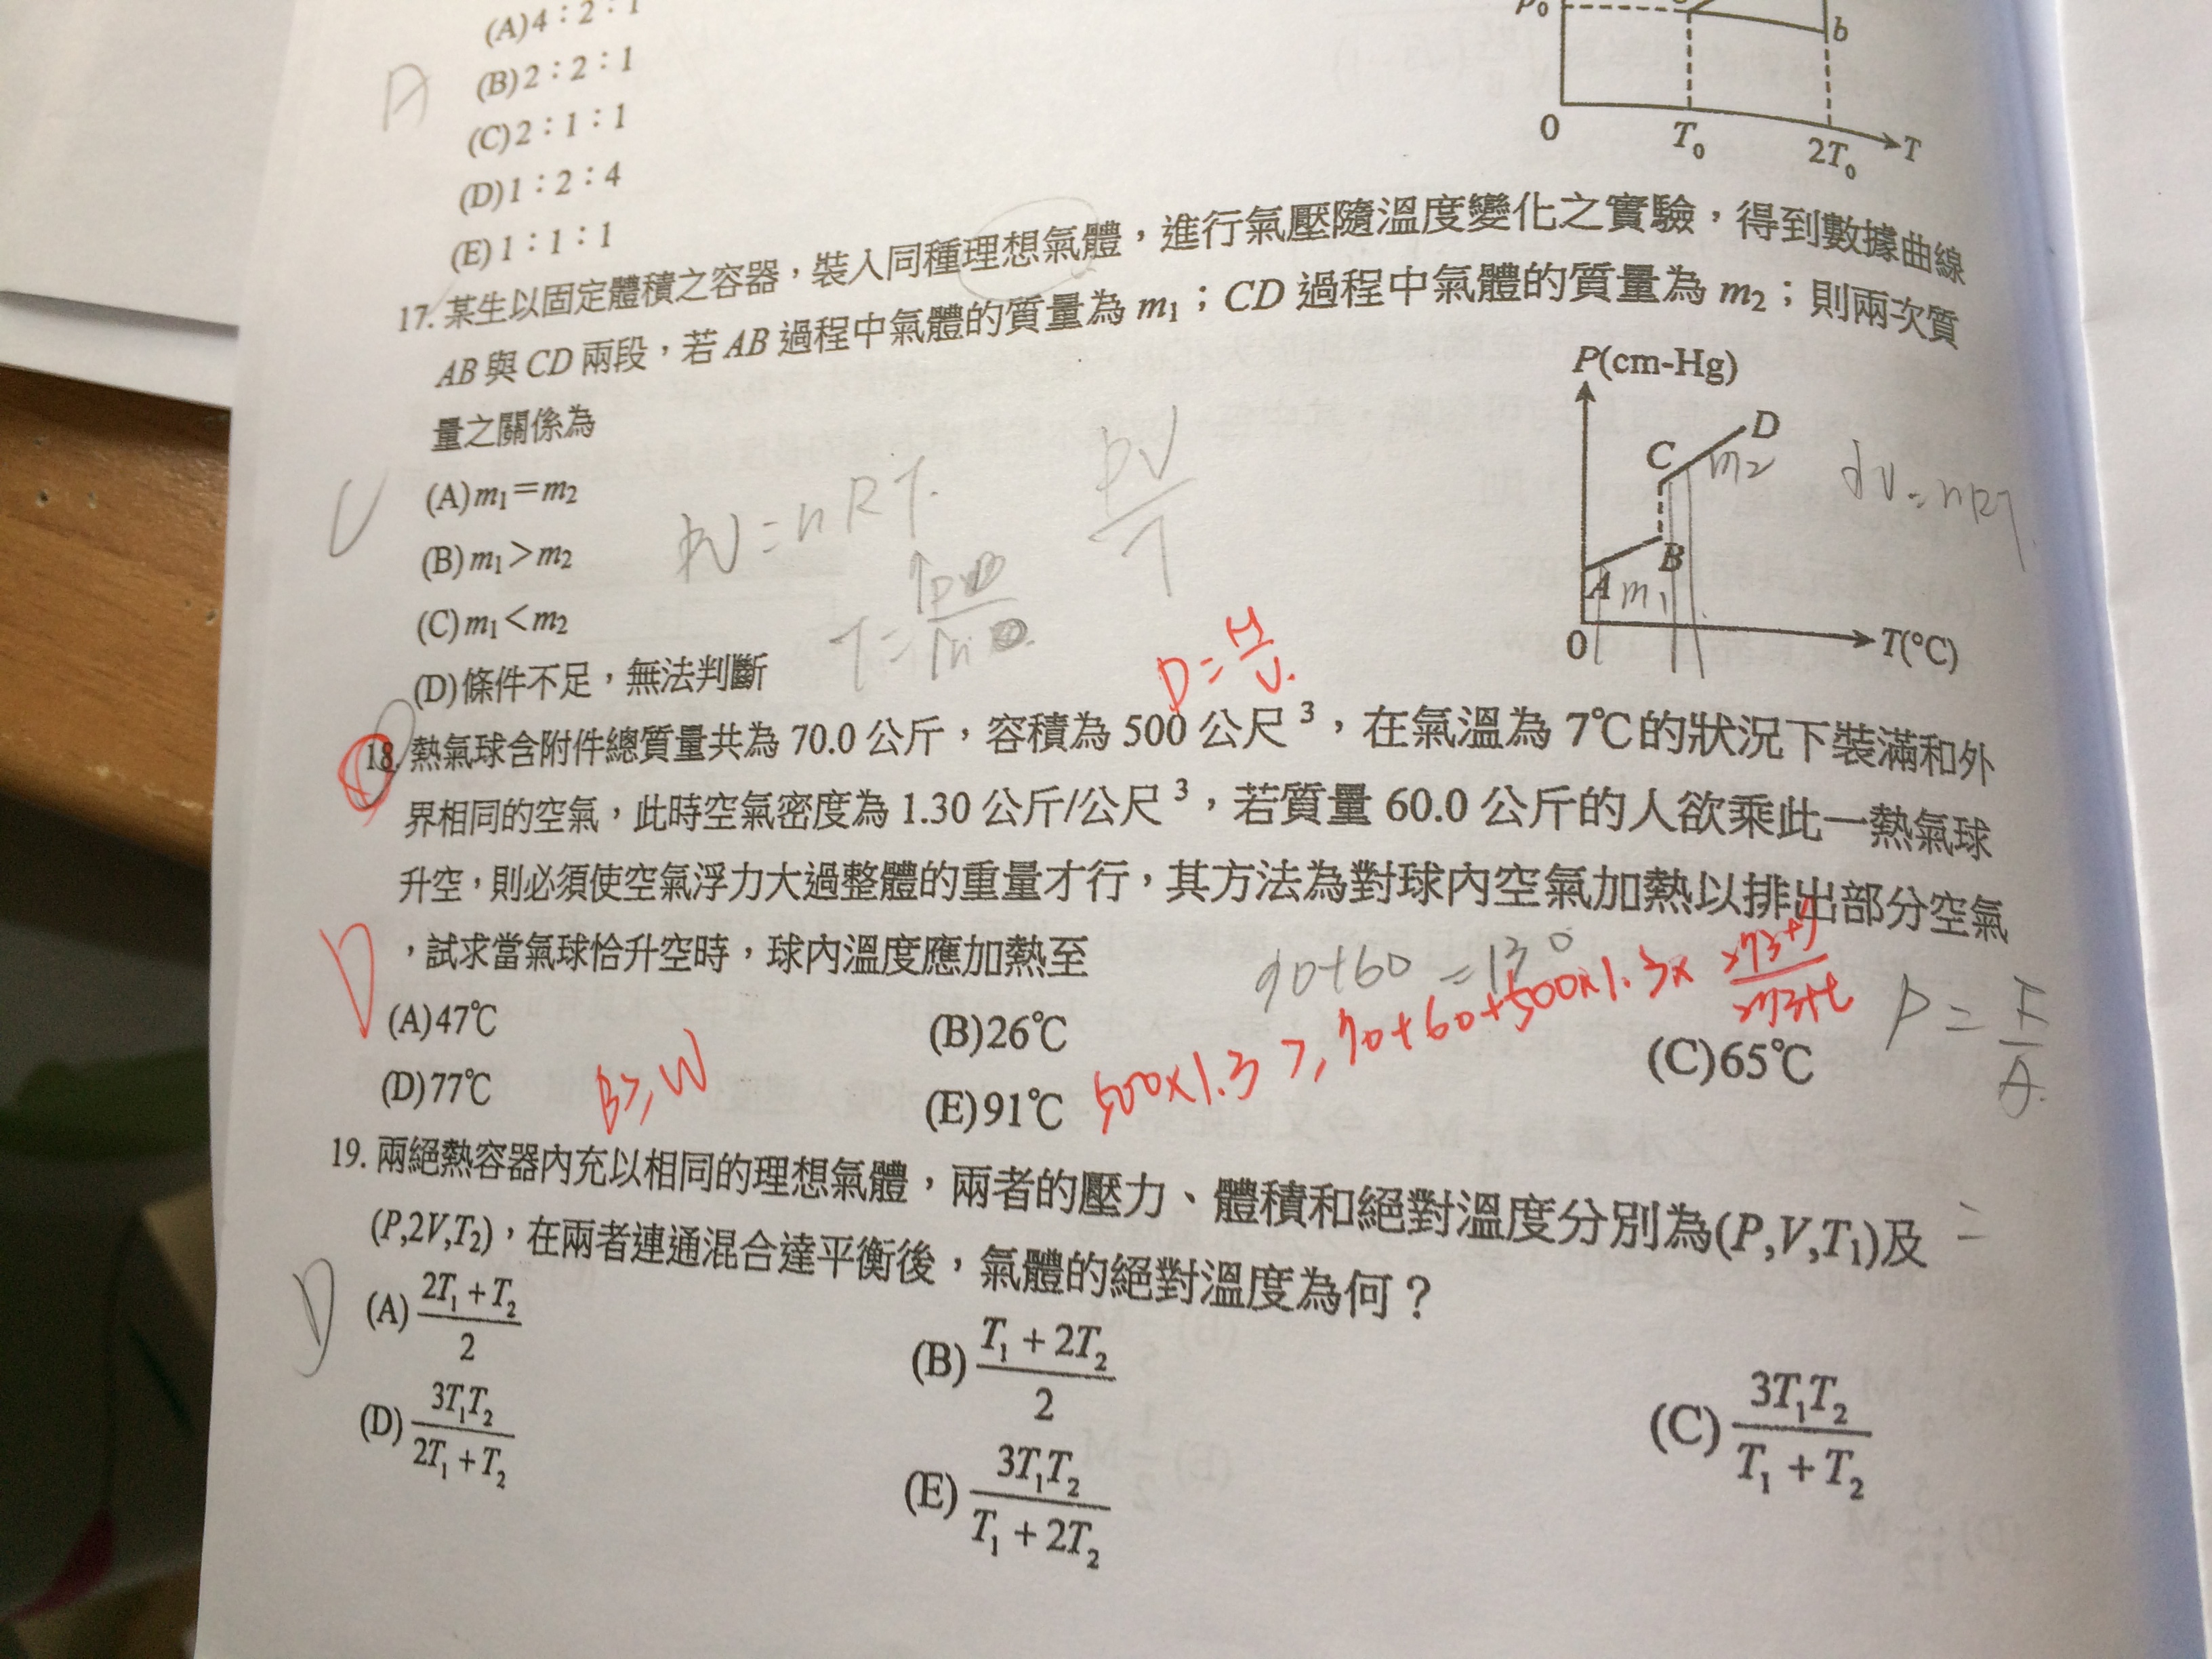 (A)4：2：1
(B)2：2：1
(C)2：1：1
(D)1：2：4
(E)1：1：1
A
P₀
b
0
T₀
2T₀
T
17. 某生以固定體積之容器，裝入同種理想氣體，進行氣壓隨溫度變化之實驗，得到數據曲線
AB 與 CD 兩段，若 AB 過程中氣體的質量為 m₁；CD 過程中氣體的質量為 m₂；則兩次質
量之關係為
(A) m₁＝m₂
(B) m₁＞m₂
(C) m₁＜m₂
(D) 條件不足，無法判斷
C
PV=nRT
PV/T
P(cm-Hg)
D
C
m₂
B
A
m₁
0
T(°C)
D=M/V
18. 熱氣球含附件總質量共為 70.0 公斤，容積為 500 公尺³，在氣溫為 7℃的狀況下裝滿和外
界相同的空氣，此時空氣密度為 1.30 公斤/公尺³，若質量 60.0 公斤的人欲乘此一熱氣球
升空，則必須使空氣浮力大過整體的重量才行，其方法為對球內空氣加熱以排出部分空氣
，試求當氣球恰升空時，球內溫度應加熱至
D
70+60=130
(A)47℃
(B)26℃
(C)65℃
(D)77℃
(E)91℃
B≥W
500×1.3≥70+60+500×1.3×273+7/273+t
P=F/A
19. 兩絕熱容器內充以相同的理想氣體，兩者的壓力、體積和絕對溫度分別為(P,V,T₁)及
(P,2V,T₂)，在兩者連通混合達平衡後，氣體的絕對溫度為何？
D
(A) 2T₁+T₂/2
(B) T₁+2T₂/2
(C) 3T₁T₂/T₁+T₂
(D) 3T₁T₂/2T₁+T₂
(E) 3T₁T₂/T₁+2T₂